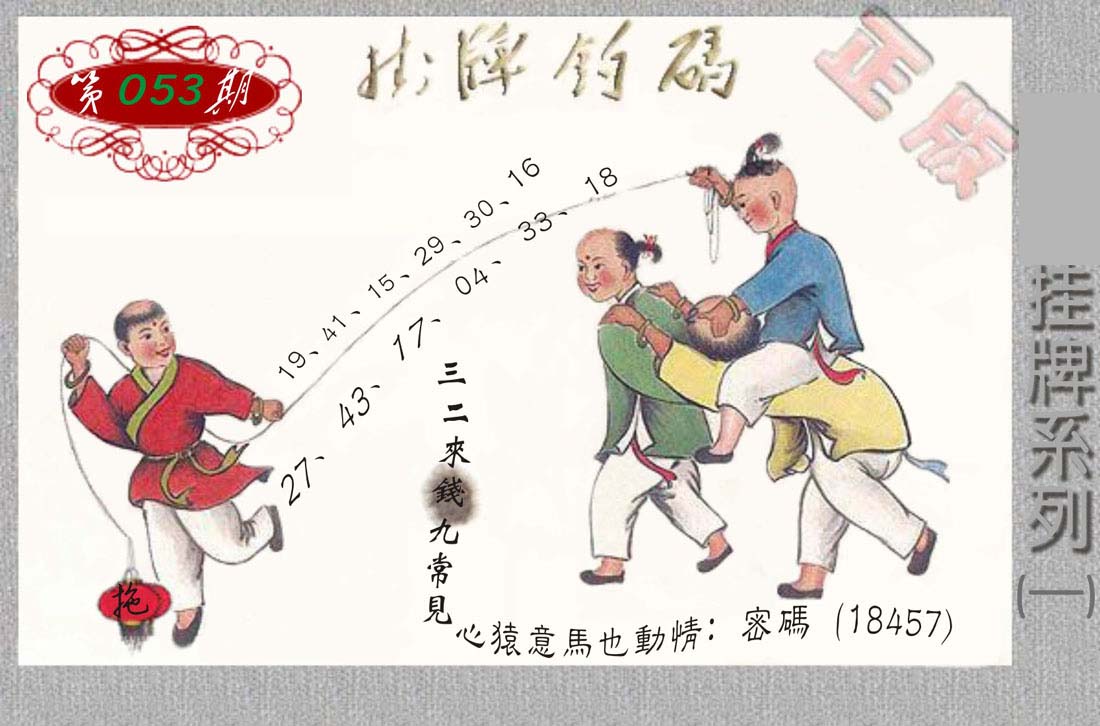 第053期
掛牌釣碼
正版
19、41、15、29、30、16
27、43、17、04、33、18
三二來錢九常見
拖
心猿意馬也動情：密碼（18457）
挂牌系列（一）